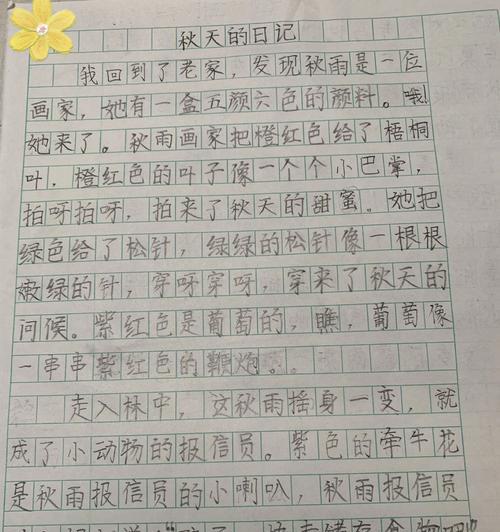 秋天的日记
我回到了老家,发现秋雨是一位
画家,她有一盒五颜六色的颜料。哦!
她来了。秋雨画家把橙红色给了梧桐
叶,橙红色的叶子像一个个小巴掌,
拍呀拍呀,拍来了秋天的甜蜜。她把
绿色给了松针,绿绿的松针像一根根
嫩绿的针,穿呀穿呀,穿来了秋天的
问候。紫红色是葡萄的,瞧,葡萄像
一串串紫红色的鞭炮。
走入林中,这秋雨摇身一变,就
成了小动物的报信员。紫色的牵牛花
是秋雨报信员的小喇叭,秋雨报信员